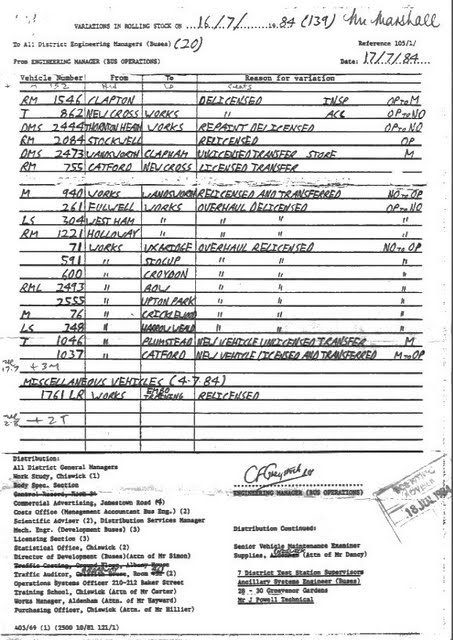 VARIATIONS IN ROLLING STOCK ON 16/7/ 1984 (139) Mr Marshall
To All District Engineering Managers (Buses) (20) Reference 105/1/
From ENGINEERING MANAGER (BUS OPERATIONS) Date: 17/7/84
Vehicle Number From To Reason for variation
RM 1546 CLAPTON DELICENSED INSP OP TO M
T 862 NEW CROSS WORKS " ACC OP TO NO
DMS 2444 THORNTON HEATH WORKS REPAINT DELICENSED OP TO NO
RM 2084 STOCKWELL RELICENSED OP
DMS 2473 WANDSWORTH CLAPHAM UNLICENSED TRANSFER STORE M
RM 755 CATFORD NEW CROSS LICENSED TRANSFER
M 940 WORKS WANDSWORTH RELICENSED AND TRANSFERRED NO TO OP
261 FULWELL WORKS OVERHAUL DELICENSED OP TO NO
LS 304 WEST HAM " " " "
RM 1221 HOLLOWAY " " " "
71 WORKS UXBRIDGE OVERHAUL RELICENSED NO TO OP
591 " SIDCUP " " "
600 " CROYDON " " "
RML 2493 " " " "
2555 " UPTON PARK " " "
M 76 " CRICKLEWOOD " " "
LS 248 " HARROW WEALD " " "
T 1046 " PLUMSTEAD NEW VEHICLE UNLICENSED TRANSFER M
1037 " CATFORD NEW VEHICLE LICENSED AND TRANSFERRED M TO OP
+ 3M
MISCELLANEOUS VEHICLES (4.7.84)
1761 LR WORKS TRAINING RELICENSED
+ 2T
Distribution:
All District General Managers
Work Study, Chiswick (1)
Body Spec. Section
Commercial Advertising, Jamestown Road
Costs Office (Management Accountant Bus Eng.) (2)
Scientific Adviser (2), Distribution Services Manager
Mech. Engr. (Development Buses) (3)
Licensing Section (3)
Statistical Office, Chiswick (2)
Director of Development (Buses)(Attn of Mr Simon)
Traffic Costing, Ground Floor, Albany House
Traffic Auditor, Room (2)
Operations Systems Office 210-212 Baker Street
Training School, Chiswick (Attn of Mr Carter)
Works Manager, Aldenham (Attn of Mr Hayward)
Purchasing Officer, Chiswick (Attn of Mr Hillier)
ENGINEERING MANAGER (BUS OPERATIONS)
18 JUL 1984
Distribution Continued:
Senior Vehicle Maintenance Examiner
Supplies, (Attn of Mr Dancy)
7 District Test Station Supervisors
Ancillary Systems Engineer (Buses)
28 - 30 Grosvenor Gardens
Mr J Powell Technical
403/69 (1) (2500 10/81 121/1)